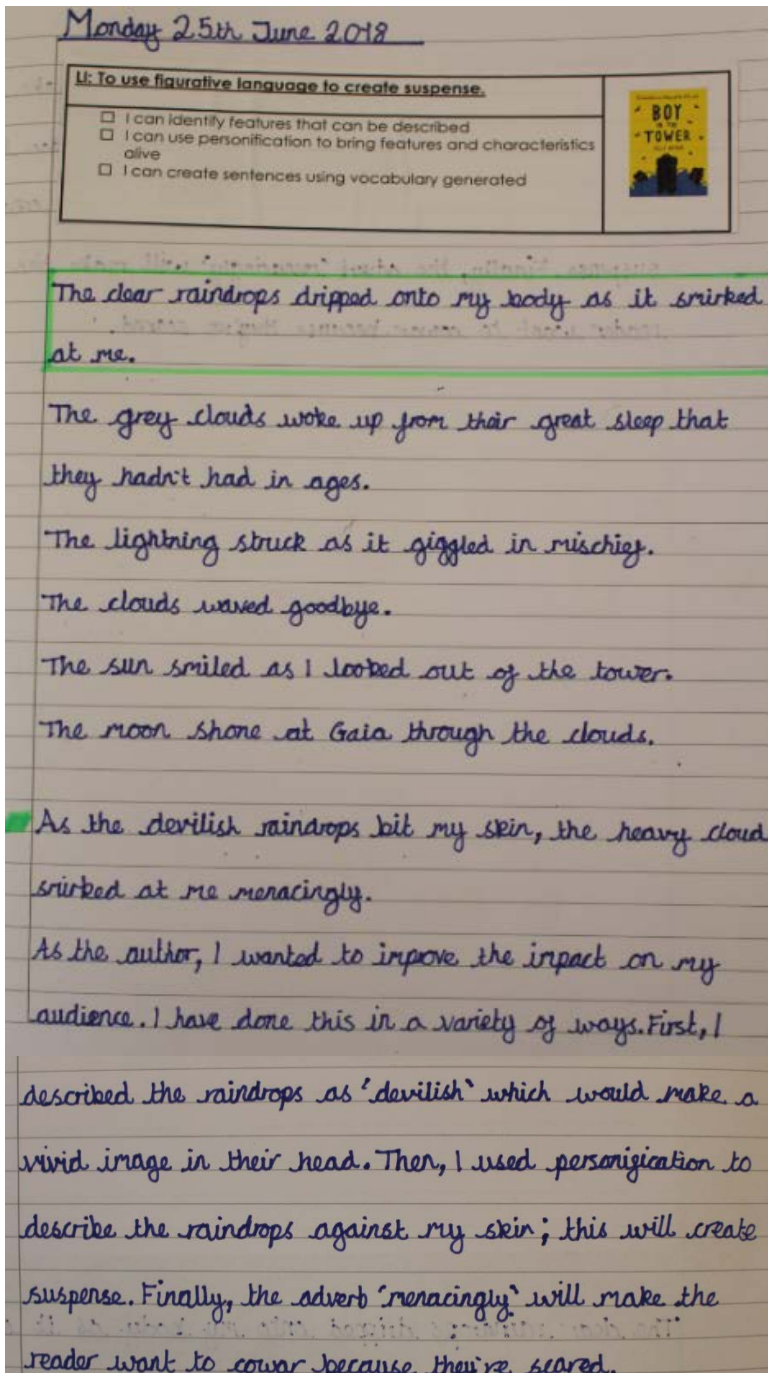 Monday 25th June 2018
LI: To use figurative language to create suspense.
☐ I can identify features that can be described
☐ I can use personification to bring features and characteristics
alive
☐ I can create sentences using vocabulary generated
BOY
IN THE
TOWER
The clear raindrops dripped onto my body as it smirked
at me.
The grey clouds woke up from their great sleep that
they hadn't had in ages.
The lightning struck as it giggled in mischief.
The clouds waved goodbye.
The sun smiled as I looked out of the tower.
The moon shone at Gaia through the clouds.
As the devilish raindrops bit my skin, the heavy cloud
smirked at me menacingly.
As the author, I wanted to improve the impact on my
audience. I have done this in a variety of ways. First, I
described the raindrops as 'devilish' which would make a
vivid image in their head. Then, I used personification to
describe the raindrops against my skin; this will create
suspense. Finally, the adverb 'menacingly' will make the
reader want to cowar because they're scared.